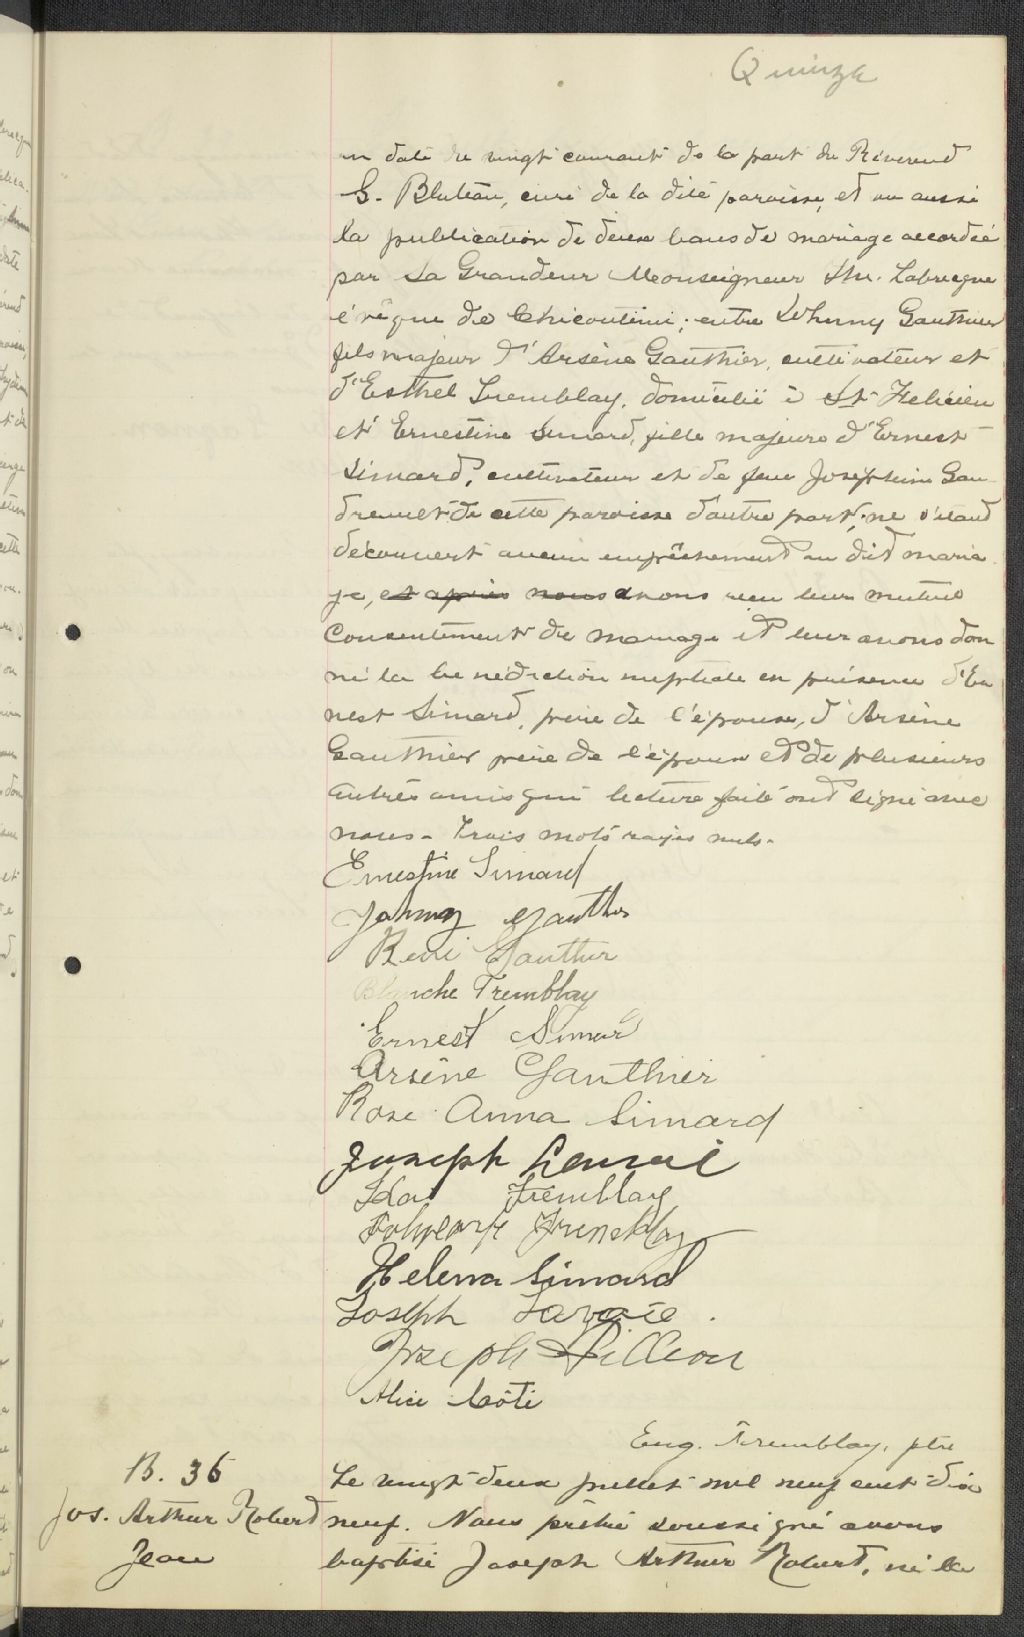 Quinze
en date du vingt courant de la part du Révérend
G. Bluteau, curé de la dite paroisse, et vu aussi
la publication de deux bans de mariage accordée
par Sa Grandeur Monseigneur Labrecque
évêque de Chicoutimi; entre Johnny Gauthier
fils majeur d'Arsène Gauthier, cultivateur et
d'Esthel Tremblay, domicilié à St Félicien
et Ernestine Simard, fille majeure d'Ernest
Simard, cultivateur et de feue Josephine Gau-
dreault de cette paroisse d'autre part; ne s'étant
découvert aucun empêchement au dit maria
ge, et après nous avons reçu leur mutuel
Consentement de mariage et leur avons don
né la bénédiction nuptiale en présence d'Er
nest Simard, père de l'épouse, d'Arsène
Gauthier père de l'époux et de plusieurs
autres amis qui lecture faite ont signé avec
nous. Trois mots rayés nuls.
Ernestine Simard
Johnny Gauthier
René Gauthier
Blanche Tremblay
Ernest Simard
Arsène Gauthier
Rose Anna Simard
Joseph
Ida Tremblay
Tremblay
Helena Simard
Joseph Lavoie
Joseph Pillion
Alice Côté
Eug. Tremblay, ptre
B. 36
Jos. Arthur Robert
Jean
Le vingt-deux juillet mil neuf cent dix
neuf. Nous prêtre soussigné avons
baptisé Joseph Arthur Robert, né la